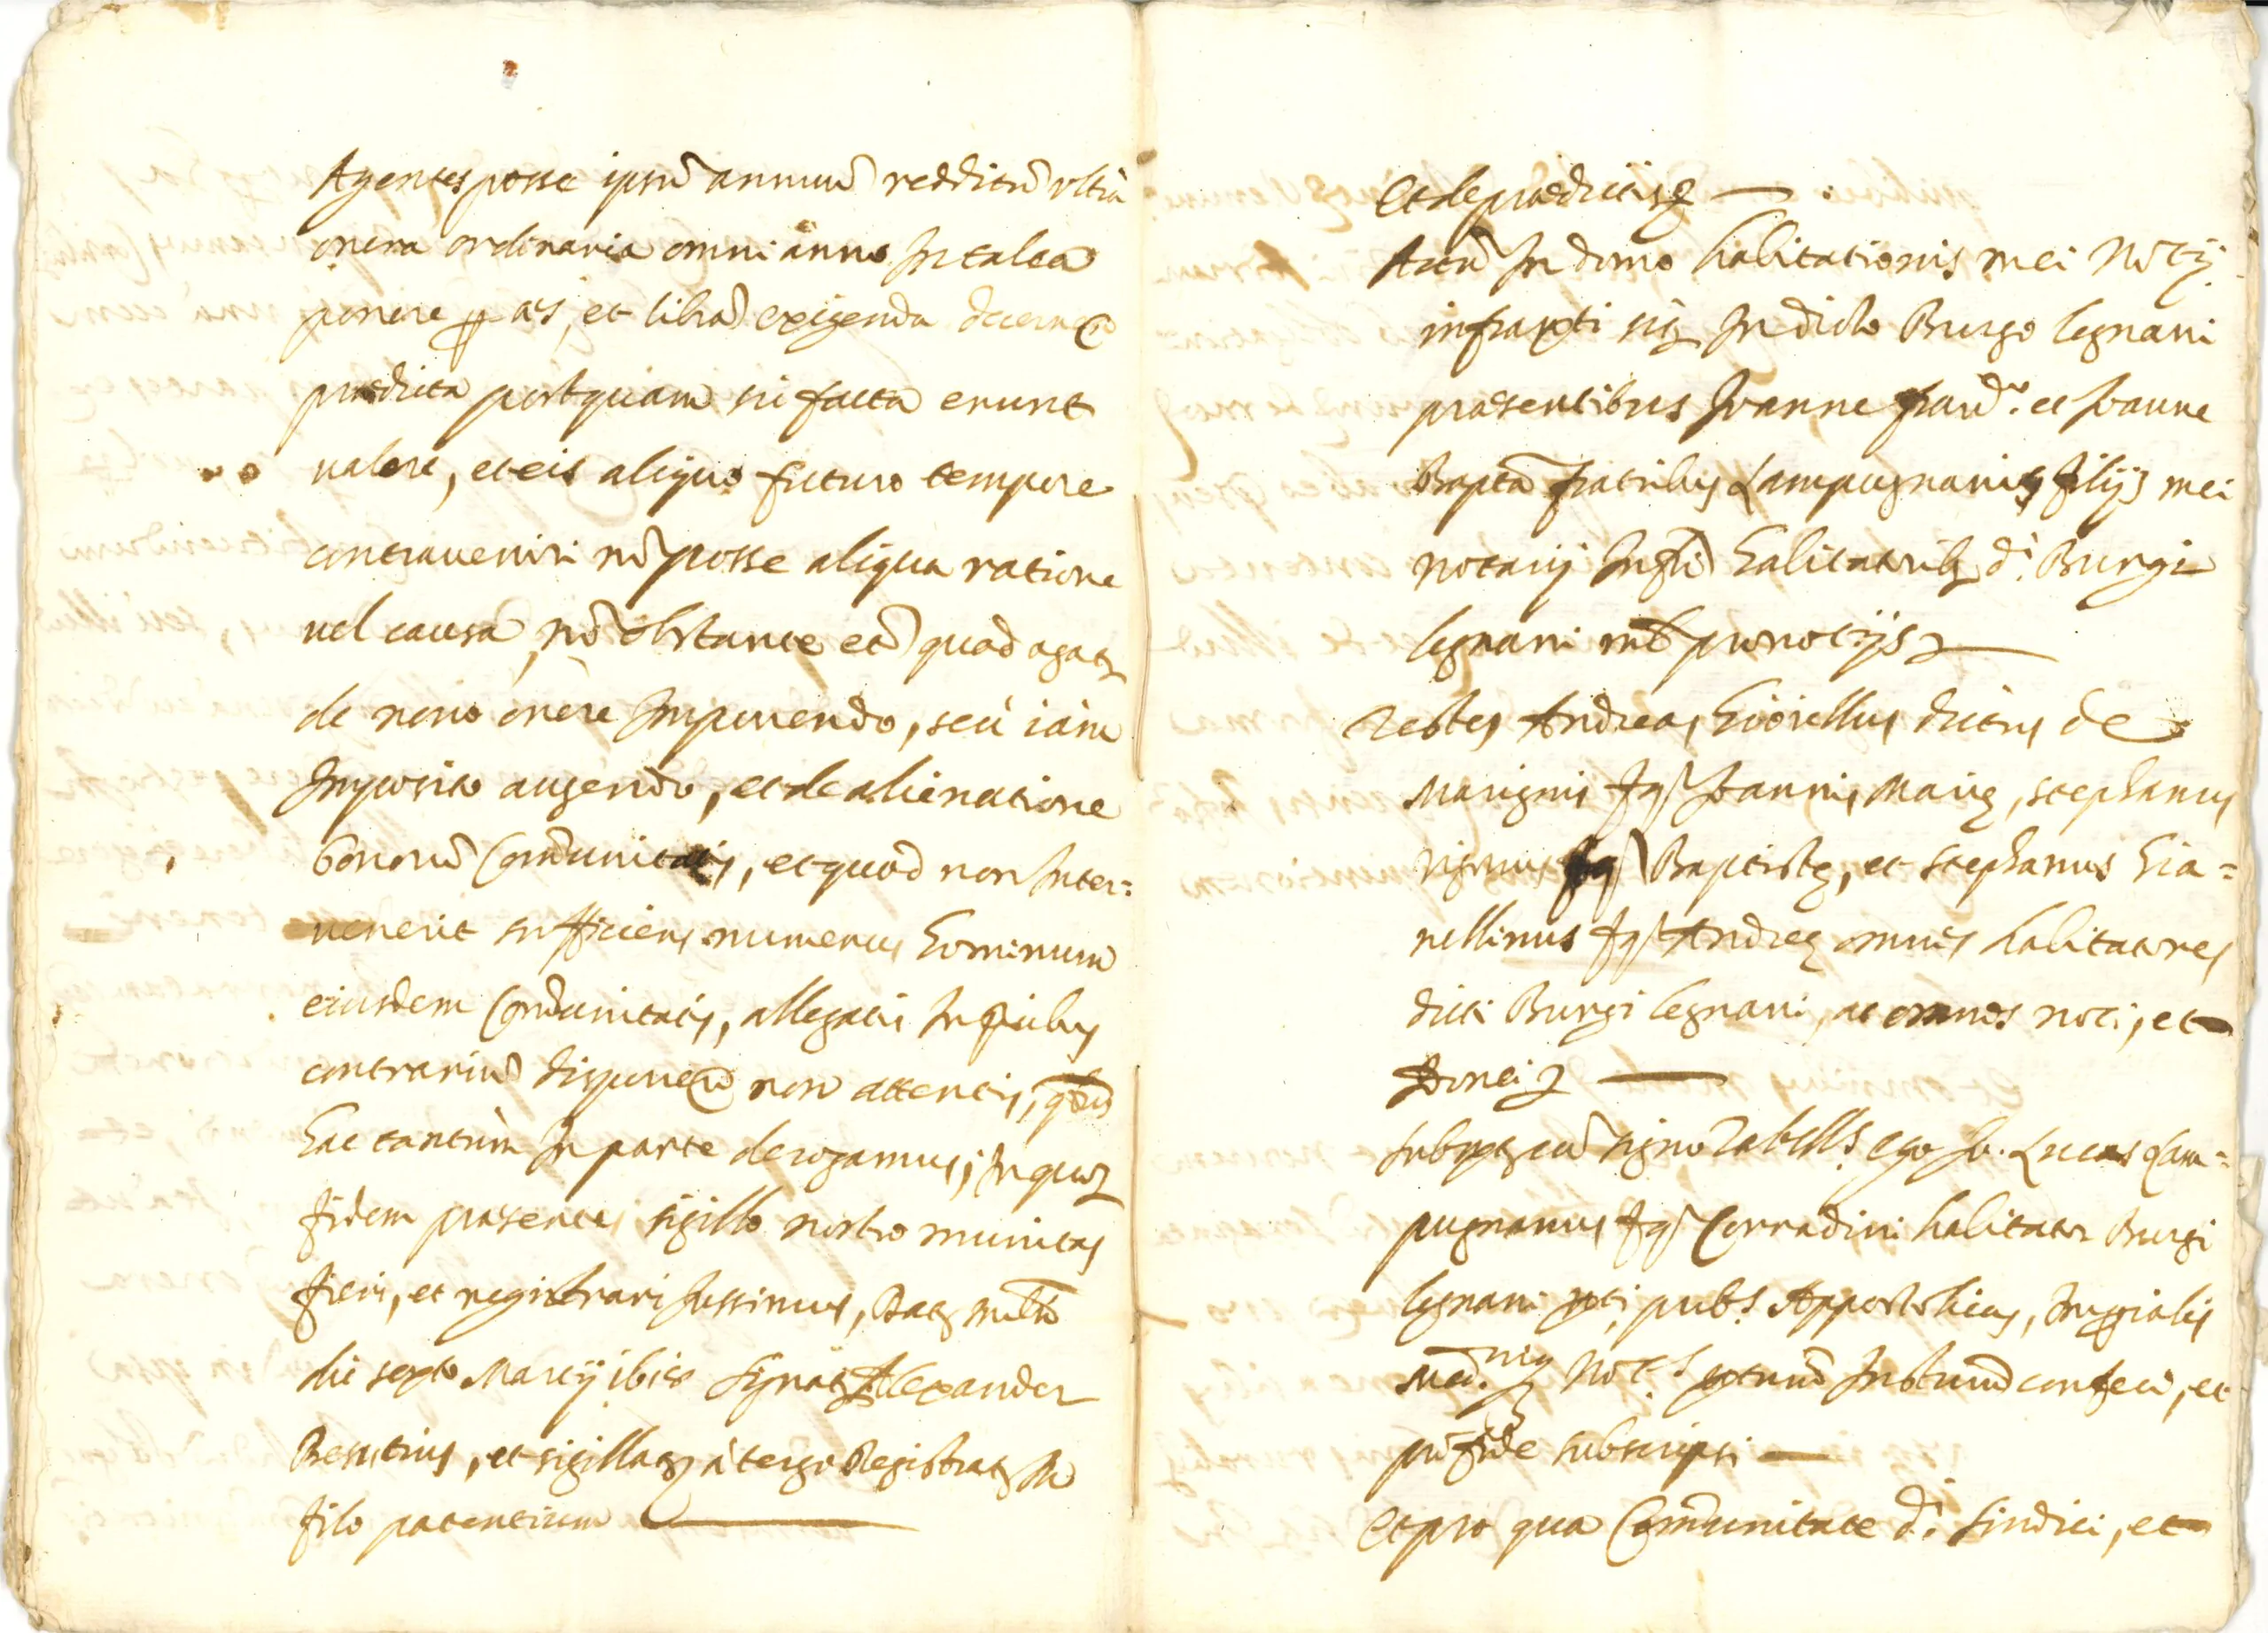 Agentes posse ipsũ annuũ redditũ ultra
onera ordinaria omni anno In talea
ponere p as, et librã exigenda
prædicta postquam sic facta erunt
ualere, et eis aliquo futuro tempore
contraueniri nõ posse aliqua ratione
uel causa, nõ obstante etiã quod agatz
de nouo onere Imponendo, seù iàm
Imposito augendo, et de alienatione
bonorũ Com̃unitatis, et quod non Inter=
uenerit sufficiens numerus hominum
eiusdem Com̃unitatis, allegatis In pcibus
contrariũ disponeñ non attentis, qbus
hac tantùm In parte derogamus; In quoz
fidem præsentes sigillo nostro munitas
fieri, et registrari Iussimus, Datz mlni
die sexto Martij ibidẽ Signatz Alexander
Besutius, et sigillatz à tergo Registratz In
filo patentium
Et de prædictis
Actũ In domo habitationis mei Notij
infrapti sitz In dicto Burgo legnani
præsentibus Joanne et Joanne
Bapta fratribus Lampugnanis filijs mei
notarij Infti habitatoribz di. Burgi
legnani pronotijs
Testes Andreas dictus de
Marignis fq Joannis Marię, stephanus
fq Baptistę, et stephanus
fq Andreę omnes habitatores
dicti Burgi legnani, ac omnes noti, et
Idonei
Subptz cũ signo Tabells. ego Jo. Lucas Lam=
pugnanus fq Corradini habitator Burgi
legnani pti, pubs. Appostolicus, Imperialis
not.s ptum Instrũm confeci, et
prõ fide subscripsi
Et pro qua Com̃unitate di. Sindici, et